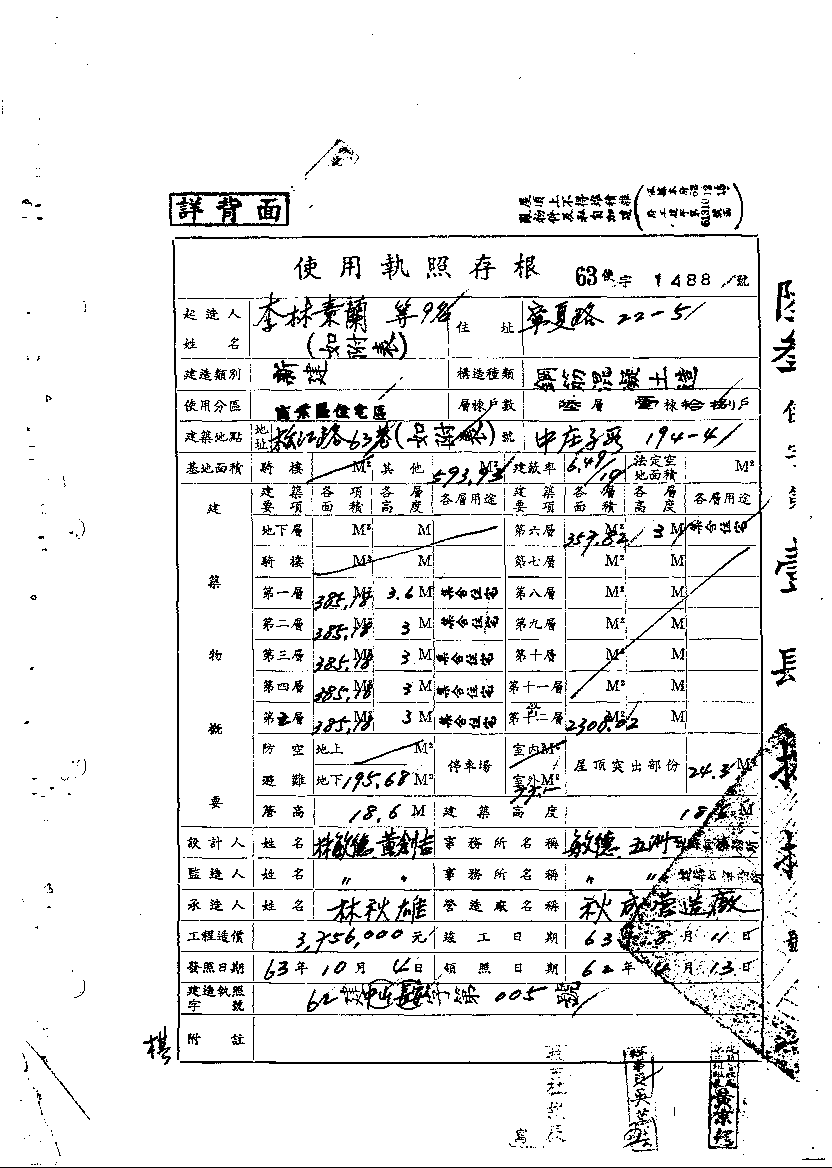 詳背面
屋頂上不得堆積雜
使用執照存根 63使字 1488 號
起造人姓名 李林素蘭 等9名(如附表) 住址 寧夏路22-5
建造類別 新建 構造種類 鋼筋混凝土造
使用分區 商業區住宅區 層棟戶數 陸層 壹棟拾捌戶
建築地點 地址 松江路63巷(如附表)號 中庄子段 194-4
基地面積 騎樓 M² 其他 593.93 M² 建蔽率 6.49/10 法定空地面積 M²
建築物概要
建築要項 各項面積 各層高度 各層用途 建築要項 各層面積 各層高度 各層用途
地下層 M² M 第六層 357.82 M² 3 M 集合住宅
騎樓 M² M 第七層 M² M
第一層 385.18 M² 3.6 M 集合住宅 第八層 M² M
第二層 385.18 M² 3 M 集合住宅 第九層 M² M
第三層 385.18 M² 3 M 集合住宅 第十層 M² M
第四層 385.18 M² 3 M 集合住宅 第十一層 M² M
第五層 385.18 M² 3 M 集合住宅 第十二層 2308.02 M²
防空避難 地上 M² 停車場 室內M² 屋頂突出部份 24.3 M²
地下 195.68 M² 室外M²
簷高 18.6 M 建築高度 18.6 M
設計人 姓名 林敏德 黃創吉 事務所名稱 敏德 五洲
監造人 姓名 〃 〃 事務所名稱 〃 〃
承造人 姓名 林秋雄 營造廠名稱 秋成營造廠
工程造價 3,756,000元 竣工日期 63年8月11日
發照日期 63年10月4日 領照日期 62年4月13日
建造執照字號 62建(中山長安)字第005號
附註
棋